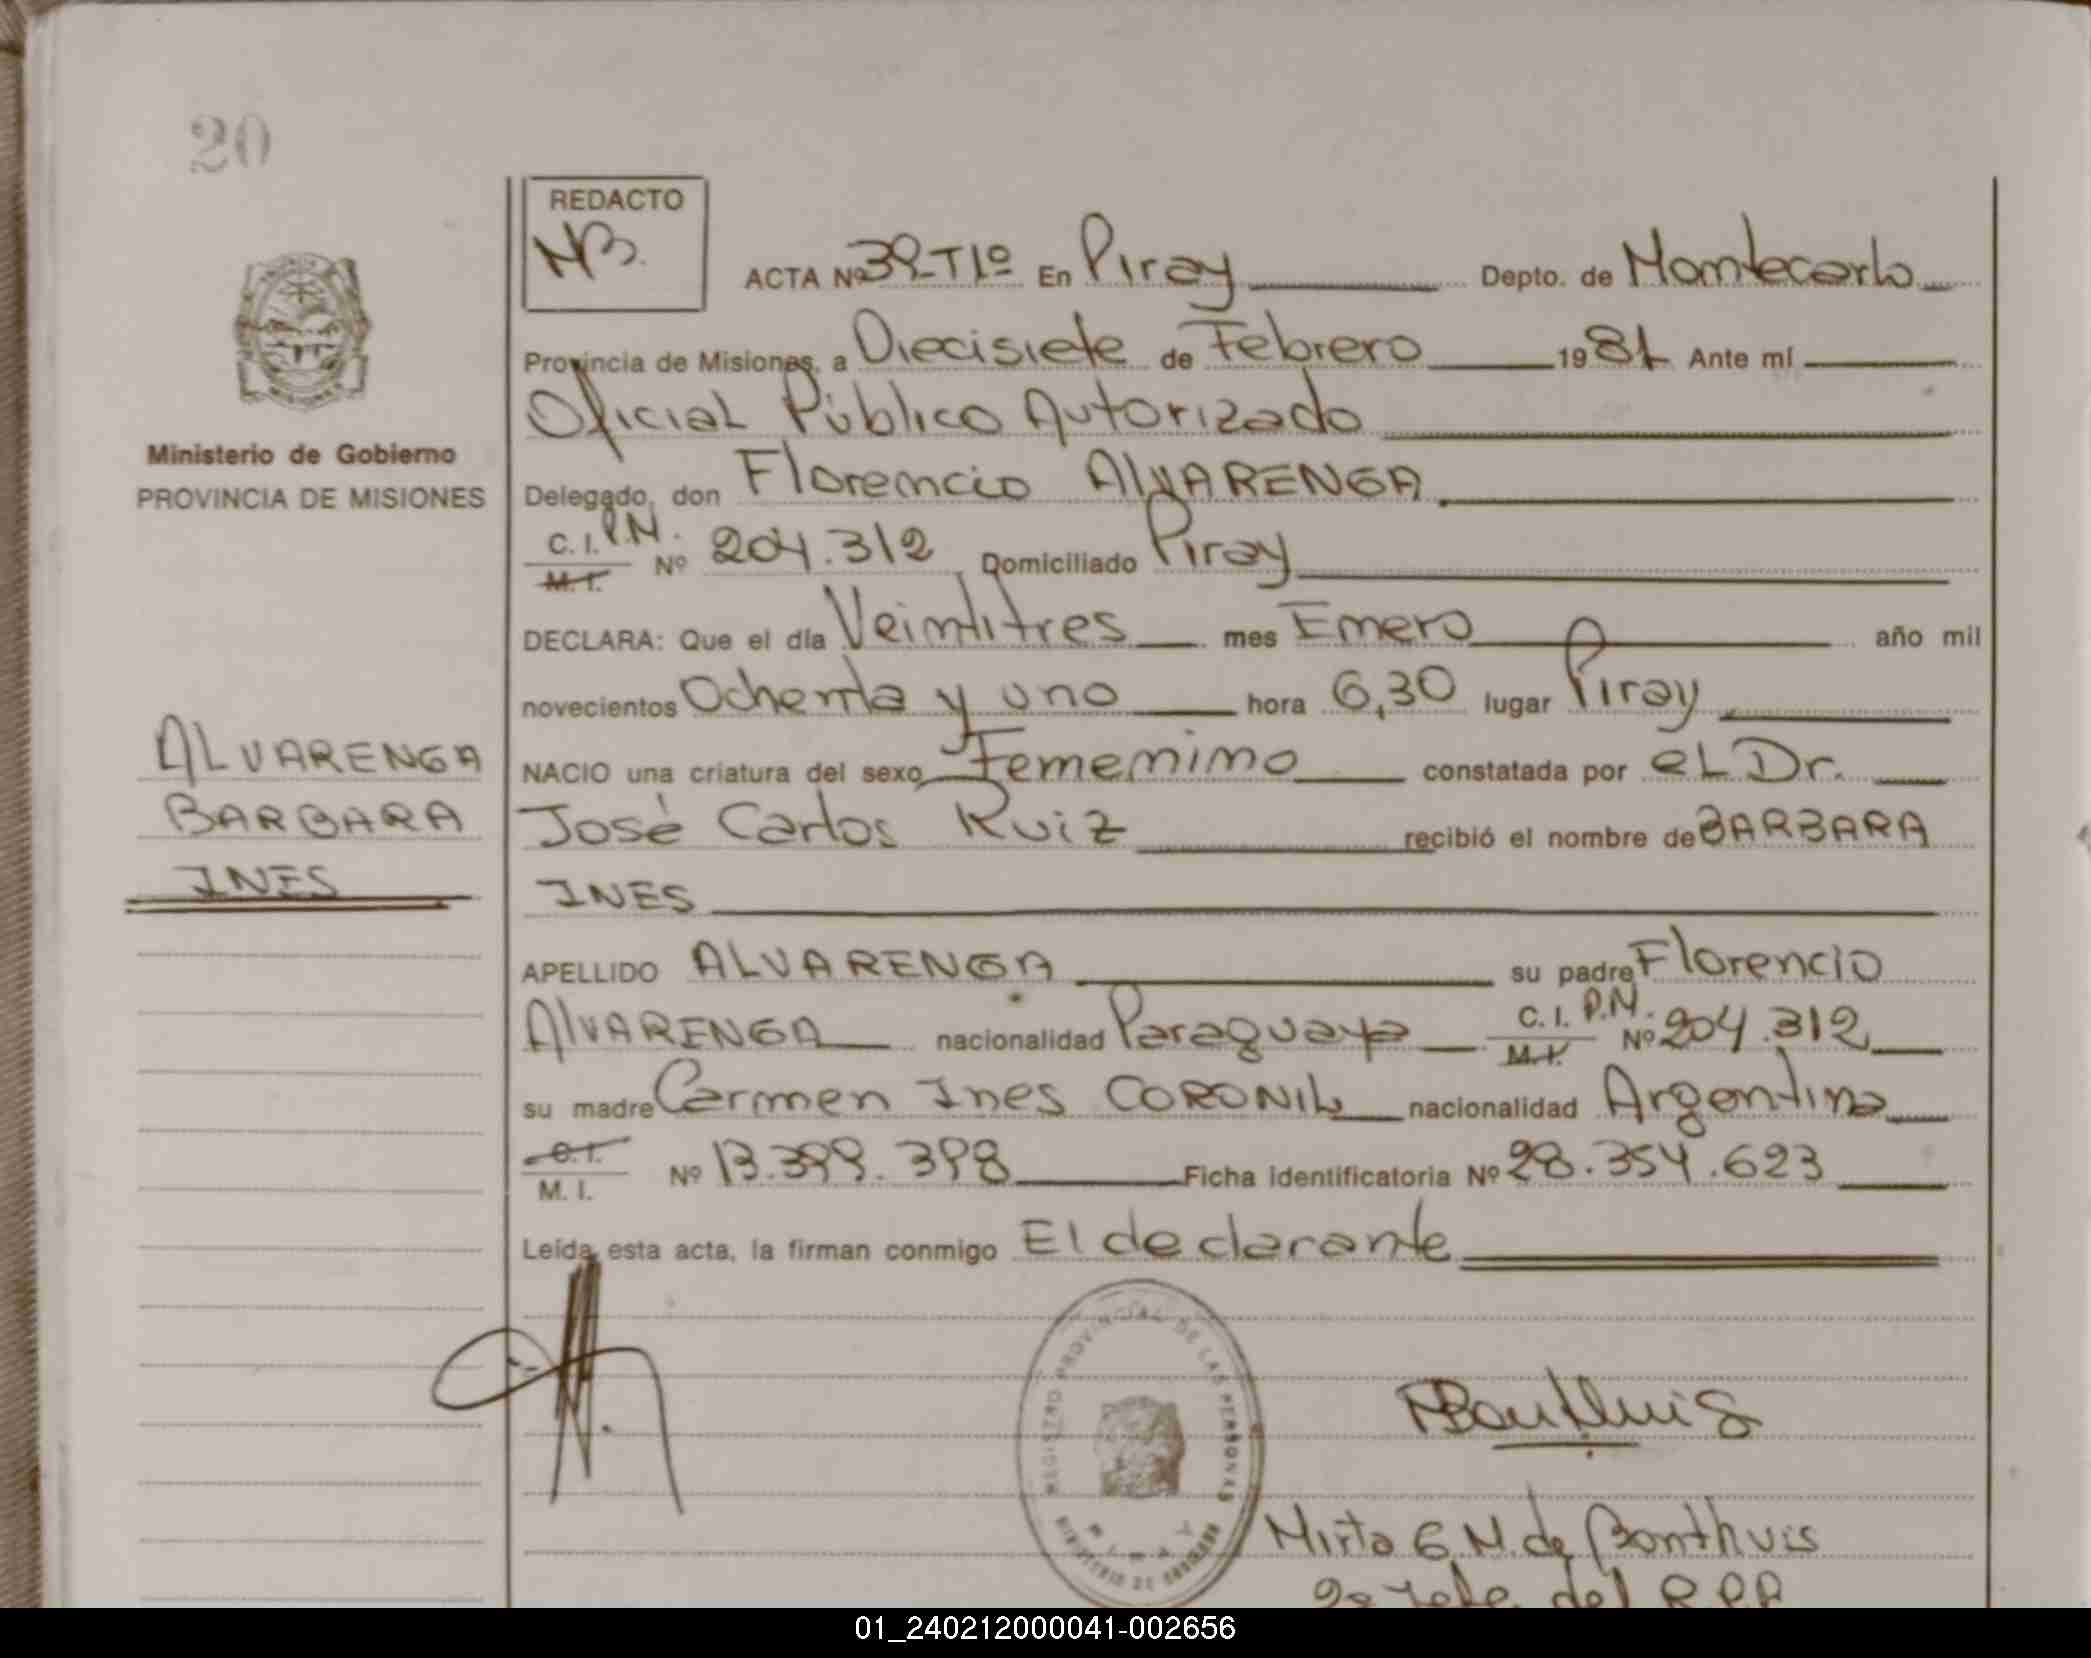 20
REDACTO
NB.
ACTA Nº 39-T1º En Piray Depto. de Montecarlo
Provincia de Misiones, a Diecisiete de Febrero 1981 Ante mí
Oficial Público Autorizado
Ministerio de Gobierno
PROVINCIA DE MISIONES
Delegado, don Florencio ALVARENGA
C. I. P.N.
M. I. Nº 204.312 Domiciliado Piray
DECLARA: Que el día Veintitres mes Enero año mil
novecientos Ochenta y uno hora 6,30 lugar Piray
ALVARENGA
BARBARA
INES
NACIO una criatura del sexo Femenino constatada por el Dr.
José Carlos Ruiz recibió el nombre de BARBARA
INES
APELLIDO ALVARENGA su padre Florencio
ALVARENGA nacionalidad Paraguaya C. I. P.N. M. I. Nº 204.312
su madre Carmen Ines CORONIL nacionalidad Argentina
C. I.
M. I. Nº 13.399.398 Ficha identificatoria Nº 28.354.623
Leída esta acta, la firman conmigo El declarante
REGISTRO PROVINCIAL DE LAS PERSONAS
PIRAY
MINISTERIO DE GOBIERNO
Mirta G.N. de Bonthuis
del R.P.P
01_240212000041-002656